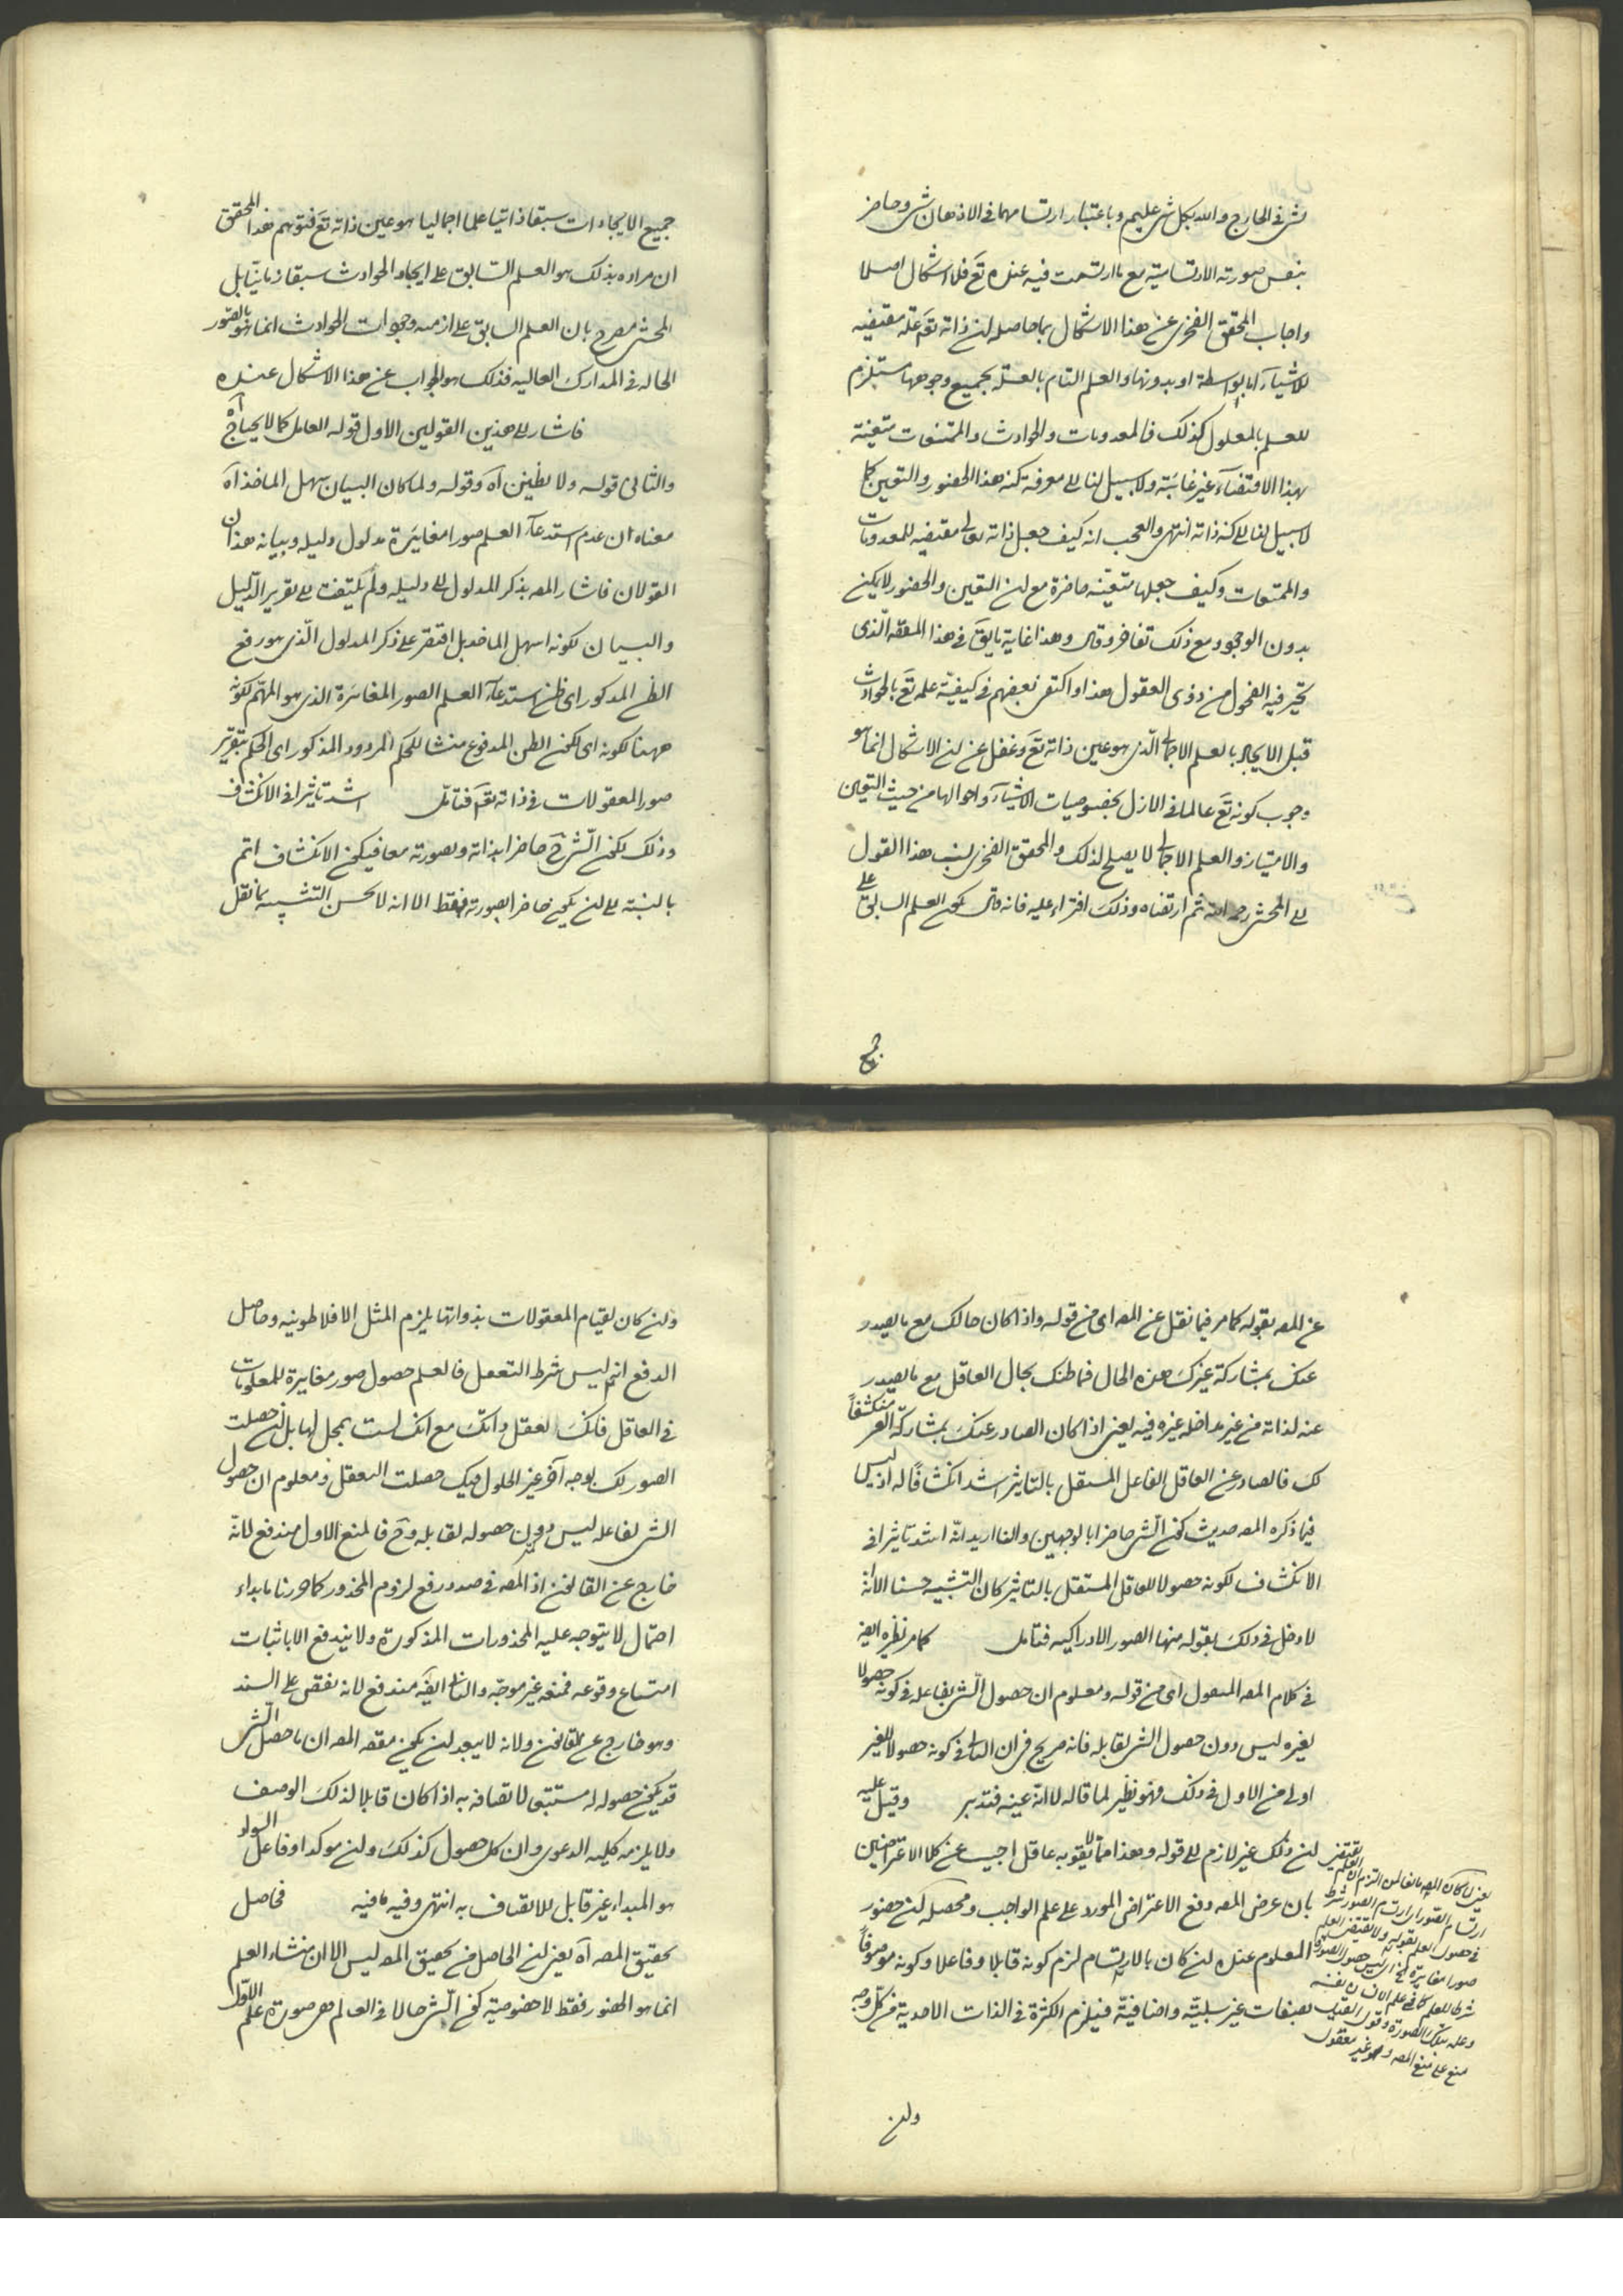 شئ في الخارج والله بكل شئ عليم وباعتبار ارتسامها في الاذهان شئ وحاضر
بنفس صورته الارتسامية مع ما ارتسمت فيه عنده تع فلا اشكال اصلا
واجاب المحقق الفخرى عن هذا الاشكال بما حاصله ان ذاته تع علة مقتضيه
للاشياء اما بواسطة او بدونها والعلم التام بالعلة بجميع وجوهها مستلزم
للعلم بالمعلول كذلك فالمعدومات والحوادث والممتنعات متعينة
بهذا الاقتضاء غير غائبة ولا سبيل لنا الى معرفة كنه هذا الحضور والتعين كما
لا سبيل لنا الى كنه ذاته انتهى والعجب انه كيف جعل ذاته تعالى مقتضيه للمعدومات
والممتنعات وكيف جعلها متعينه حاضرة مع ان التعين والحضور لا يمكن
بدون الوجود ومع ذلك تفاخر وقال وهذا غاية ما يق في هذا المقام الذى
تحير فيه الفحول من ذوى العقول هذا واكتفى بعضهم في كيفية علمه تع بالحوادث
قبل الايجاد بالعلم الاجمالى الذى هو عين ذاته تع وغفل عن ان الاشكال انما هو
وجوب كونه تع عالما في الازل بخصوصيات الاشياء واحوالها من حيث التعين
والامتياز والعلم الاجمالى لا يصلح لذلك والمحقق الفخرى نسب هذا القول
الى المحشى رحمه الله ثم ارتضاه وذلك افتراء عليه فانه قال يكون العلم السابق على
جميع
جميع الايجادات سبقا ذاتيا علما اجماليا هو عين ذاته تع فتوهم هذا المحقق
ان مراده بذلك هو العلم السابق على ايجاد الحوادث سبقا زمانيا بل
المحشى مصرح بان العلم السابق على ازمنه وجودات الحوادث انما هو بالصور
الحاله في المدارك العاليه فذلك هو الجواب عن هذا الاشكال عنده
فاشار الى هذين القولين الاول قوله العاقل كما لا يحتاج آه
والثانى قوله ولا تظنن آه وقوله ولما كان البيان سهل الماخذ آه
معناه ان عدم استدعاء العلم صورا مغايرة مدلول دليله وبيانه هذان
القولان فاشار المص بذكر المدلول الى دليله ولم يلتفت الى تقرير الدليل
والبيان لكونه اسهل الماخذ بل اقتصر على ذكر المدلول الذى هو رفع
الظن المذكور اى ظن استدعاء العلم الصور المغايرة الذى هو المهم لكونه
ههنا لكونه اى لكون الظن المدفوع منشا للحكم المردود المذكور اى الحكم بتقرير
صور المعقولات في ذاته تع فتامل اشد تاثيرا في الانكشاف
وذلك لكون الشئ ح حاضرا بذاته وبصورته معا فيكون الانكشاف اتم
بالنسبة الى ان يكون حاضرا بصورته فقط الا انه لا يحسن التشبيه بما نقل
عن المص بقوله كما مر فيما نقل عن المص اى من قوله واذا كان حالك مع ما يصدر
عنك بمشاركة غيرك هذه الحال فما ظنك بحال العاقل مع ما يصدر
عنه لذاته من غير مداخلة غيره فيه يعنى اذا كان الصادر عنك بمشاركة الغير منكشفاً
لك فالصادر عن العاقل الفاعل المستقل بالتاثير اشد انكشافاً له اذ ليس
فيما ذكره المص حديث كون الشئ حاضرا بالوجهين والفا اريد انه اشد تاثيرا في
الانكشاف لكونه حصولا للعاقل المستقل بالتاثير كان التشبيه حسنا الا انه
لا دخل في ذلك بقوله منها الصور الادراكيه فتامل كما مر نظيره ايض
في كلام المص المنقول اى من قوله ومعلوم ان حصول الشئ لفاعله في كونه حصولا
لغيره ليس دون حصول الشئ لقابله فانه صريح في ان الثانى في كونه حصولا للغير
اولى من الاول في ذلك فهو نظير لما قاله لا انه عينه فتدبر وقيل عليه
ان ذلك غير لازم الى قوله وهذا مما لا يتفوه به عاقل اجيب عن كلا الاعتراضين
بان غرض المص دفع الاعتراض المورد على علم الواجب ومحصله ان حضور
المعلوم عنده ان كان بالارتسام لزم كونه قابلا وفاعلا وكونه موصوفاً
بصفات غير سلبية واضافية فيلزم الكثرة في الذات الاحدية من كل وجه
ارتسام الصور اى ارتسام الصور شرط
في حصول العلم بقوله ولا يقتضى العلم
صورا مغايرة
شرط للعلم كما في علم الانسان بنفسه
منع على منع المص وهو غير معقول
وان
وان كان لقيام المعقولات بذواتها يلزم المثل الافلاطونيه وحاصل
الدفع انه ليس شرط التعقل فالعلم حصول صور مغايرة للمعلومات
في العاقل فانك تعقل ذاتك مع انك لست بمحل لها بل ان حصلت
الصور لك بوجه آخر غير الحلول فيك حصلت التعقل ومعلوم ان حصول
الشئ لفاعله ليس دون حصوله لقابله وح فالمنع الاول مندفع لانه
خارج عن القانون اذ المص في صدد رفع لزوم المحذور كما قررنا بابداء
احتمال لا يتوجه عليه المحذورات المذكورة ولا يندفع الا باثبات
امتناع وقوعه فمنعه غير موجه والثانى ايض مندفع لانه نقض على السند
وهو خارج عن القانون ولانه لا يبعد ان يكون مقصد المص ان ما حصل الشئ
قد يكون حصوله له مستتبعا لاتصافه به اذا كان قابلا لذلك الوصف
ولا يلزمه كلية الدعوى وان كل حصول كذلك وان موكدا وفاعل السواد
هو المبداء غير قابل للاتصاف به انتهى وفيه ما فيه فحاصل
تحقيق المص آه يعنى ان الحاصل من تحقيق المص ليس الا ان منشاء العلم
انما هو الحضور فقط لا خصوصية كون الشئ حالا في العالم